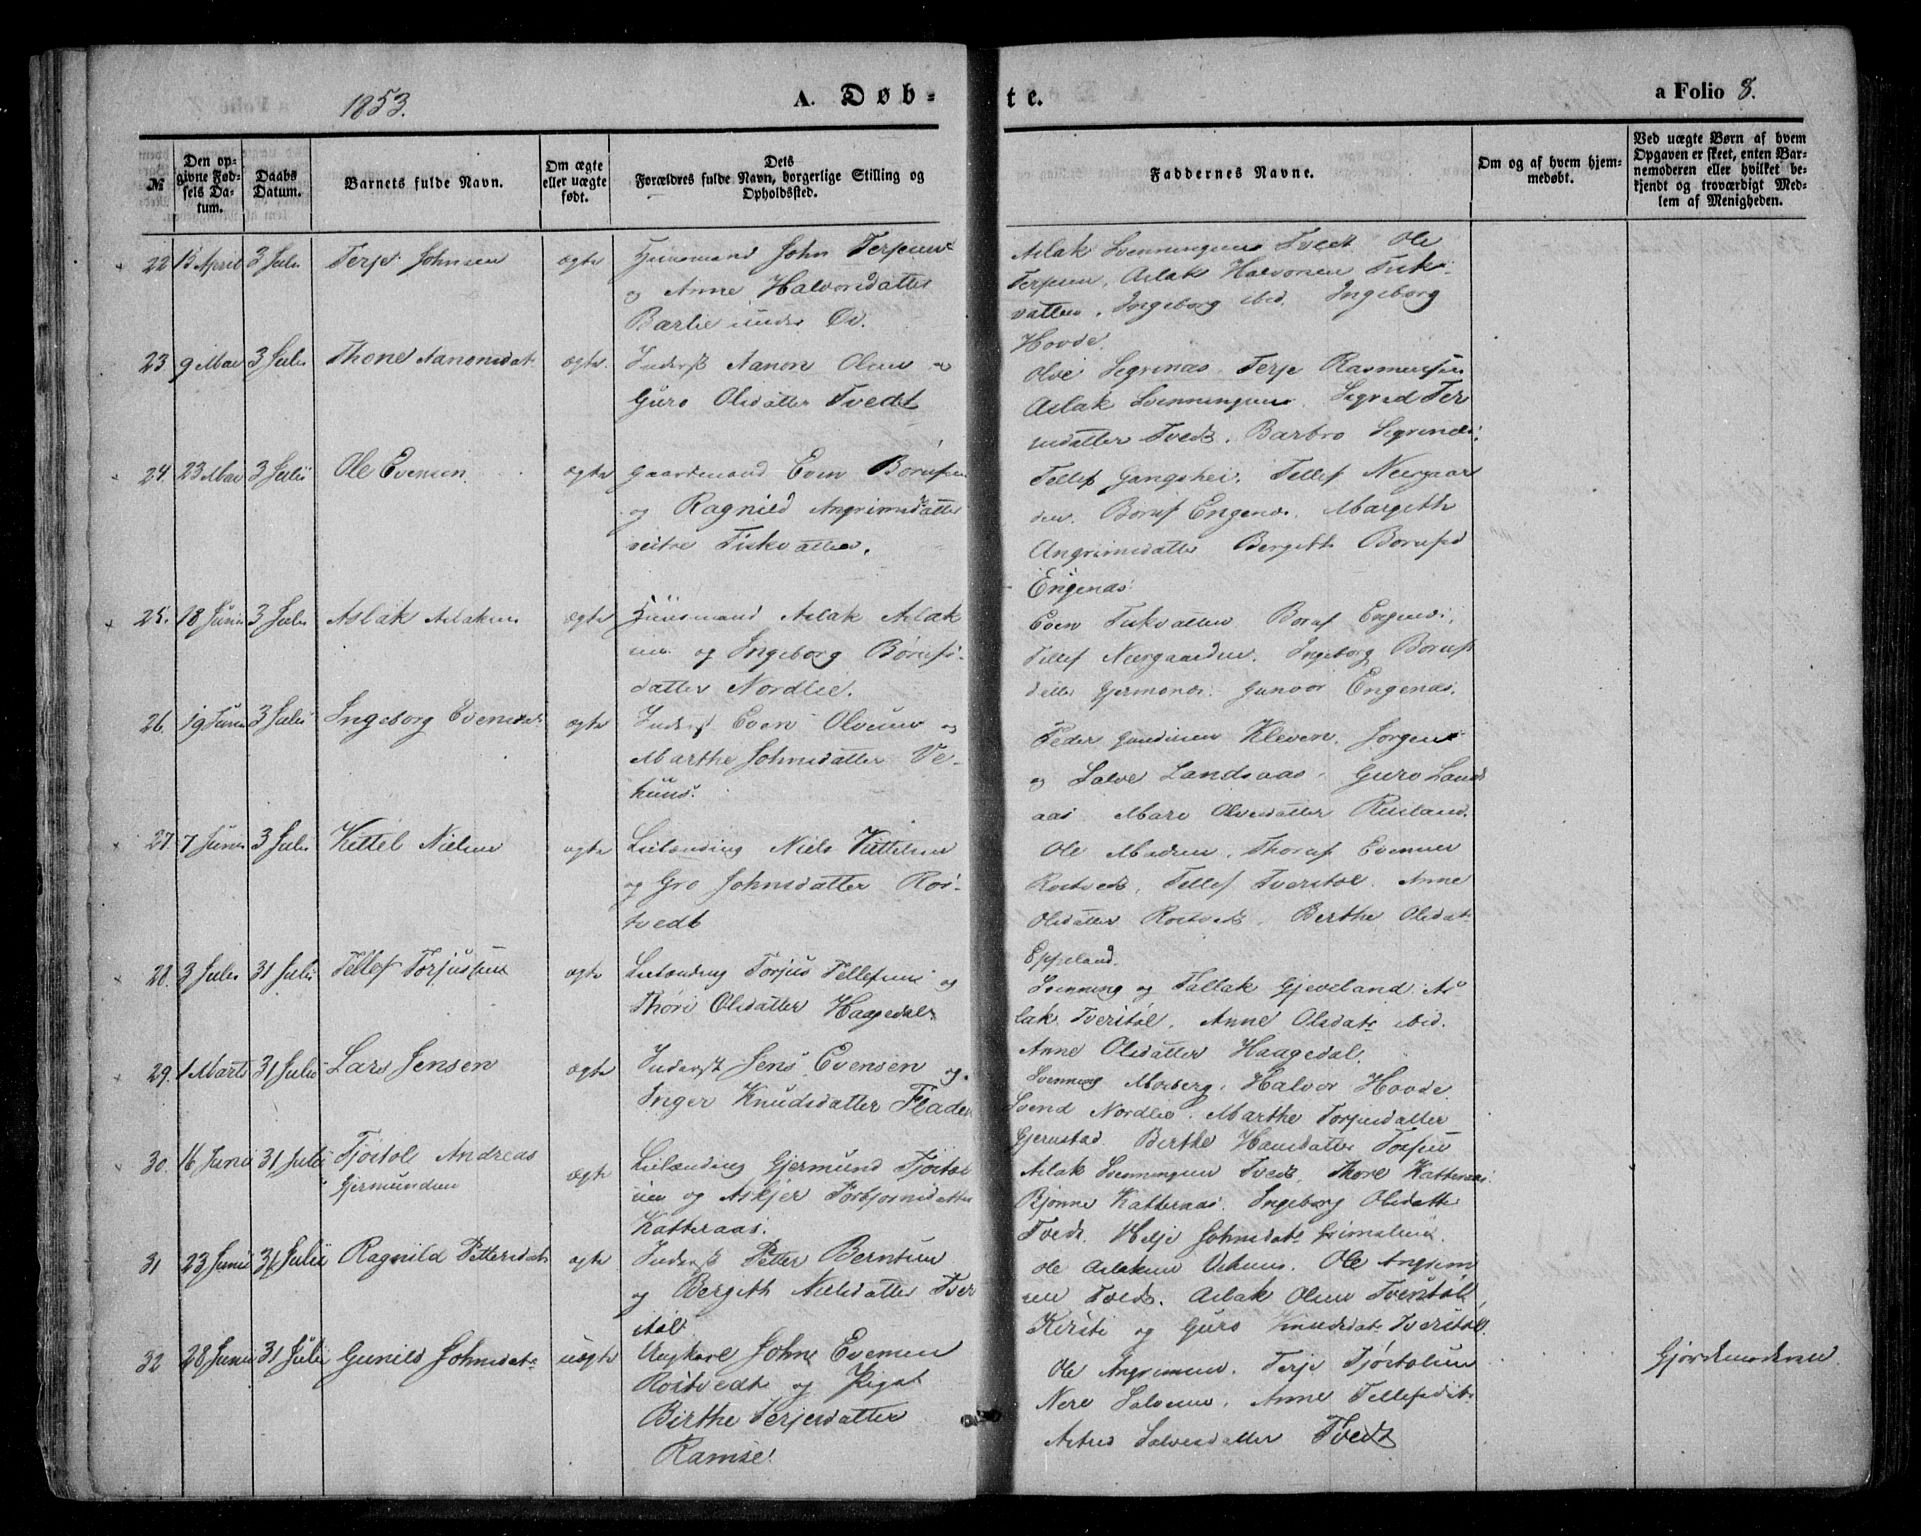 1853.
A. Døb-
te.
a Folio 8.
№
Den opgivne Fødsels Datum.
Daabs Datum.
Barnets fulde Navn.
Om ægte eller uægte født.
Dets Forældres fulde Navn, borgerlige Stilling og Opholdssted.
Faddernes Navne.
Om og af hvem hjemmedøbt.
Ved uægte Børn af hvem Opgaven er skeet, enten Barnemoderen eller hvilket bekjendt og troværdigt Medlem af Menigheden.
22 15 April 3 Juli Terje Johnsen ægte Huusmand John Terjesen
og Anne Halvorsdatter
Barlie under
Aslak Svenningsen Tvedt. Ole
Terjesen, Aslak Halvorsen Fisk-
vatten, Ingeborg ibid. Ingeborg
Hovde.
23. 9 Mai 3 Juli Thone Aanonsdat ægte Inderst Aanon Olsen og
Guro Olsdatter Tvedt
Olve Segrinæs. Terje Rasmussen
Aslak Svenningsen. Sigrid Ter
jesdatter Tvedt. Barbro Segrinæs.
24. 23 Mai 3 Juli Ole Evensen ægte Gaardmand Even Børufsen
og Ragnild Angrimsdatter
veitre Fiskvatten.
Tellef Gangshei. Tellef Neergaar
den. Boruf Engenæs. Margith
Angrimsdatter Bergith Borufsd
Engenæs.
25. 18 Juni 3 Juli Aslak Aslaksen ægte Huusmand Aslak Aslak
sen og Ingeborg Børufs-
datter Nordlie.
Even Fiskvatten Boruf Engenæs.
Tellef Neergaarden. Ingeborg Borufs
datter Gjermonds. Gunvor Engenæs.
26. 19 Juni 3 Juli Ingeborg Evensdat ægte Inderst Even Olvesen og
Marthe Johnsdatter Ve-
huus.
Peder Gundersen Kleven. Jørgen
og Salve Landsaas. Guro Lands
aas Mari Olvesdatter Rusland.
27 7 Juni 3 Juli Kittel Nielsen ægte Leilænding Niels Kittelsen
og Gro Johnsdatter Ros-
tvedt
Ole Madsen, Thoruf Evensen
Rostvedt, Tellef Tverstøl. Anne
Olsdatter Rostvedt, Berthe Olsdat
Eppeland.
28. 3 Juli 31 Juli Tellef Torjussen ægte Leilænding Torjus Tellefsen og
Thore Olsdatter Haagedal
Svenning og Tallak Gjeveland. As
lak Tverstøl, Anne Olsdatr ibid.
Anne Olsdatter Haagedal.
29. 1 Marts 31 Juli Lars Jensen ægte Inderst Jens Evensen og
Inger Knudsdatter Fladen
Svenning Morberg. Halvor Hovde.
Svend Nordlie. Marthe Torjusdatter
Gjerustad. Birthe Hansdatter
30. 16 Juni 31 Juli Tjøstol Andreas
Gjermundsen
ægte Leilænding Gjermund Tjøstol
sen og Askjer Torbjørnsdatter
Katteraas.
Aslak Svenningsen Tvedt. Thore Katteraas.
Bjønne Katteraas. Ingeborg Olsdatter
Tvedt. Helje Johnsdatr Grimslien.
31 23 Juni 31 Juli Ragnild Pettersdatr ægte Inderst Petter Berntsen
og Bergith Nielsdatter Tver
støl
Ole Aslaksen Vehuus. Ole Angrim
sen Tvedt. Aslak Olsen Tverstøl.
Kirsti og Guro Knudsdatr Tverstøl.
32 28 Juni 31 Juli Gunild Johnsdatr uægte Ungkarl Johne Evensen
Rostvedt og Pige
Birthe Terjesdatter
Ramse
Ole Angrimsen. Terje Tjøstolsen
Nere Salvesen. Anne Tellefsdatr
Astrid Salvesdatter Tvedt
Gjordemoderen